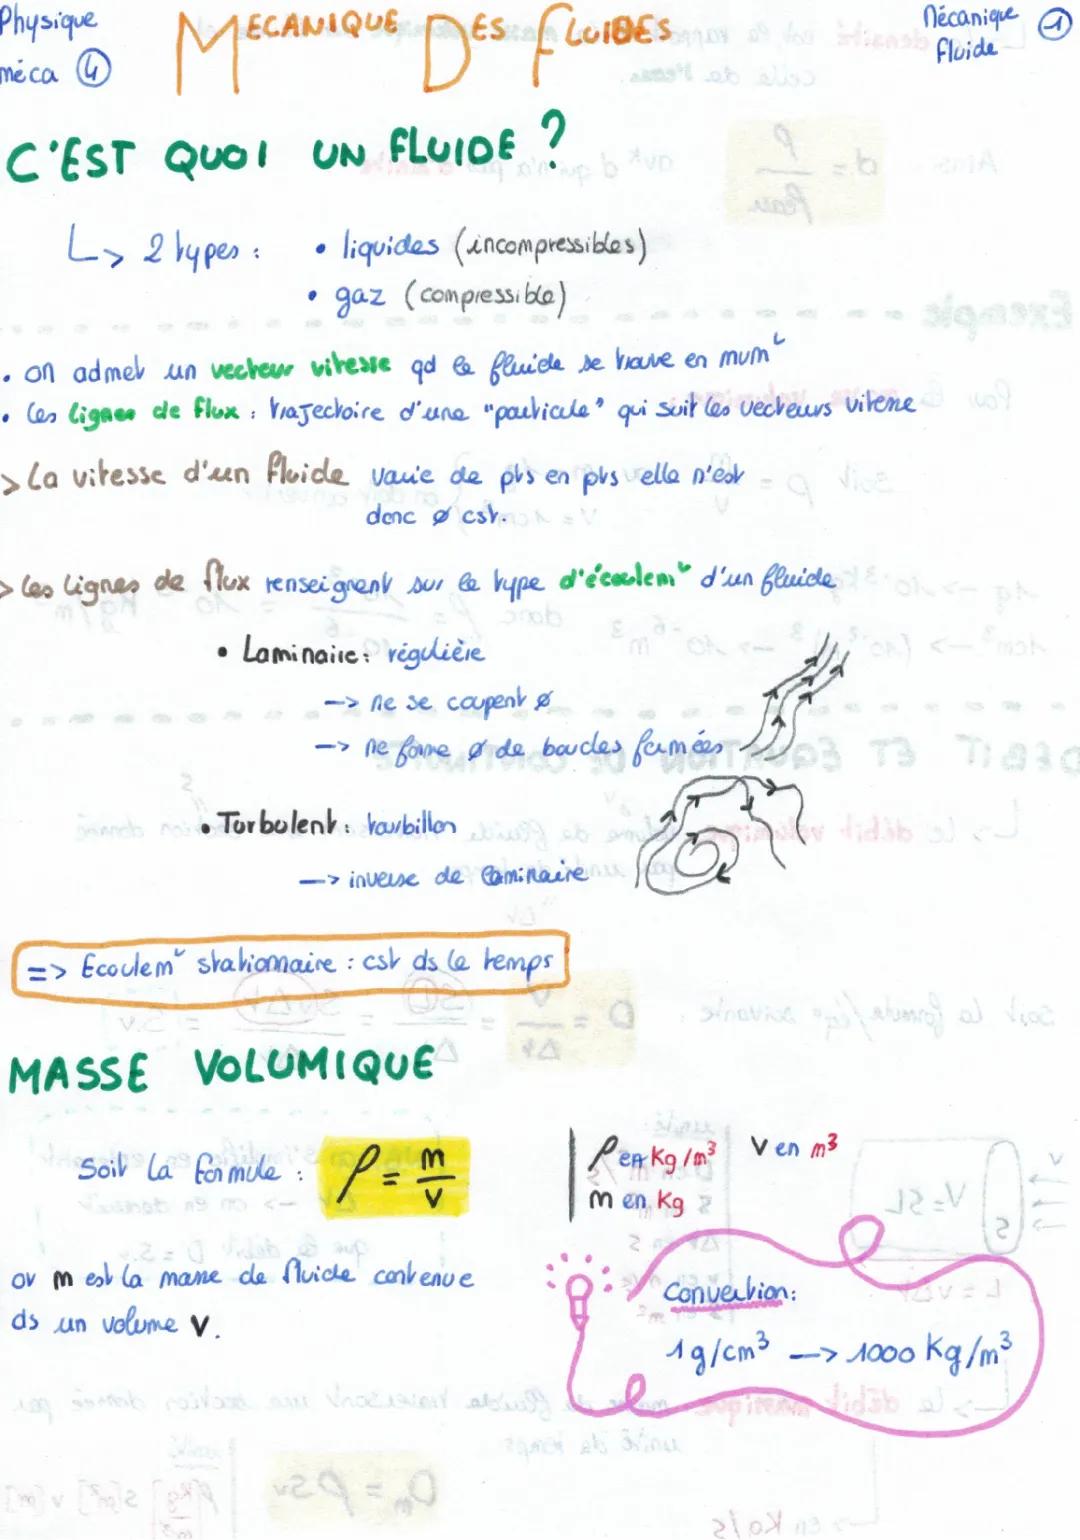 Physique
méca ④
MECANIQUE DES FLUIDES
Mécanique
Fluide
①
C'EST QUOI UN FLUIDE ?
↳ 2 types :
• liquides (incompressibles)
• gaz (compressible)
• on admet un vecteur vitesse qd le fluide se trouve en mvmt
• les lignes de flux : trajectoire d'une "particule" qui suit les vecteurs vitesse
> La vitesse d'un fluide varie de pts en pts elle n'est
donc ø cst.
> les lignes de flux renseignent sur le type d'écoulemt d'un fluide
• Laminaire : régulière
-> ne se coupent ø
-> ne forme ø de boucles fermées
• Turbulent : tourbillon
-> inverse de laminaire
=> Ecoulemt stationnaire : cst ds le temps
MASSE VOLUMIQUE
Soit la formule : ρ = m/V
ρ en Kg/m³ V en m³
m en Kg
où m est la masse de fluide contenue
ds un volume V.
Convertion :
1g/cm³ -> 1000 Kg/m³